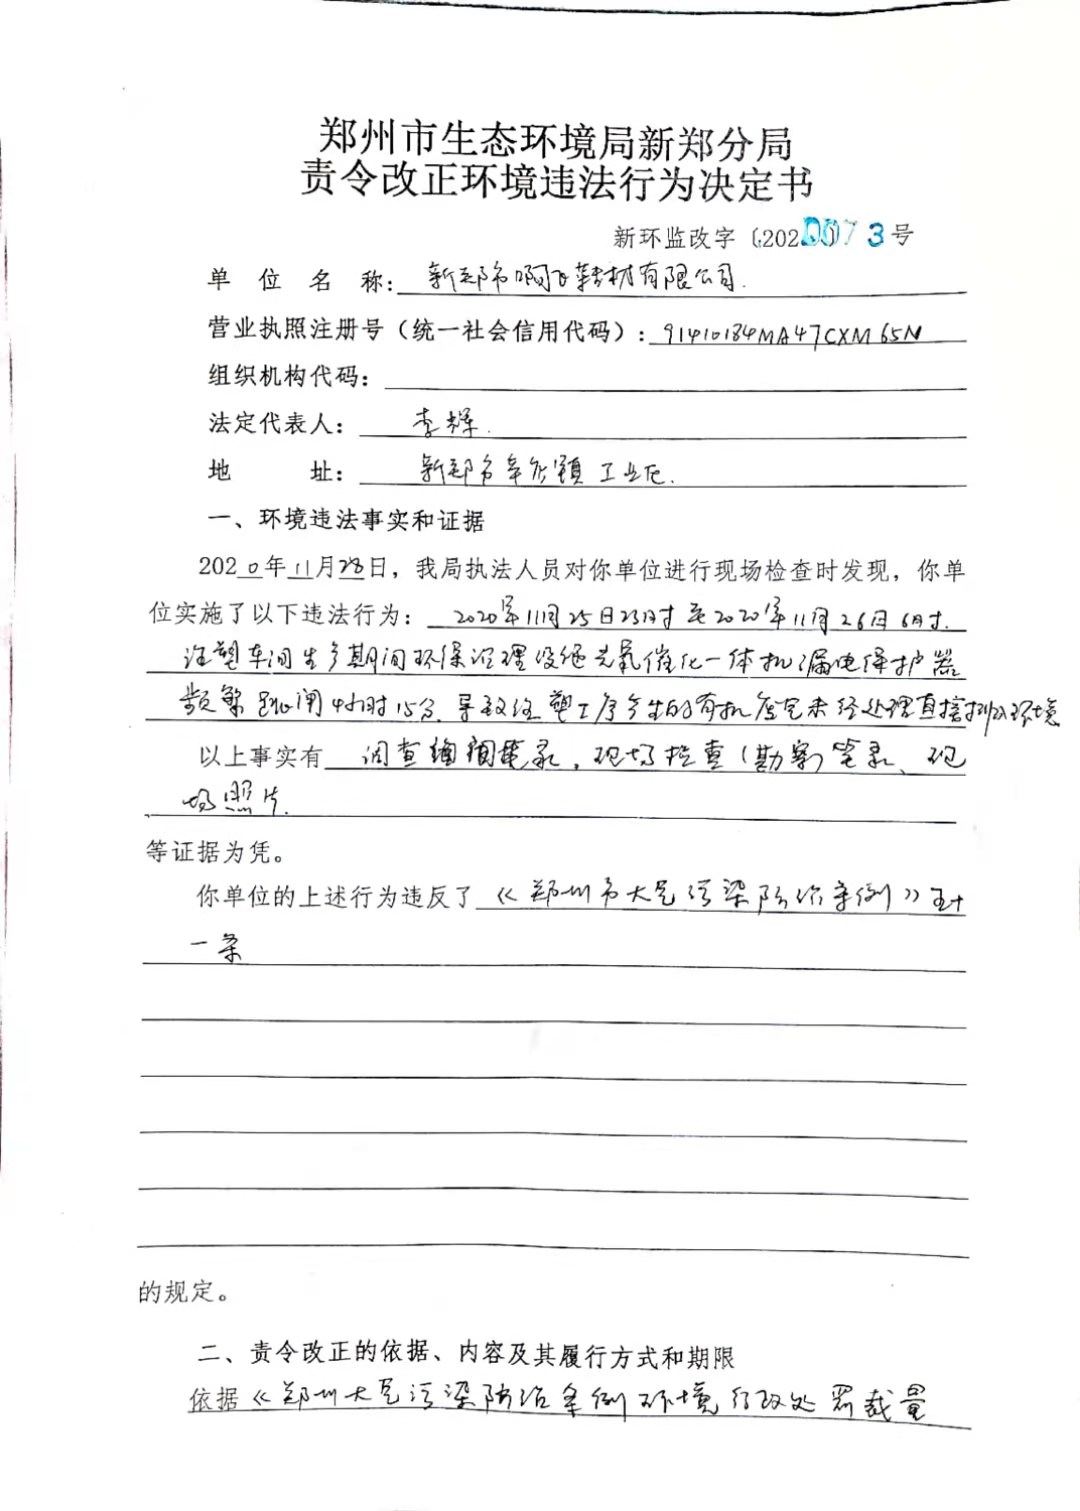 郑州市生态环境局新郑分局
责令改正环境违法行为决定书
新环监改字〔2020073号
单位名称：新郑市啊飞鞋材有限公司.
营业执照注册号（统一社会信用代码）：91410184MA47CXM65N
组织机构代码：
法定代表人：李辉.
地址：新郑市辛店镇工业区.
一、环境违法事实和证据
2020年11月28日，我局执法人员对你单位进行现场检查时发现，你单
位实施了以下违法行为：2020年11月25日23时至2020年11月26日6时.
注塑车间生产期间环保治理设施光氧催化一体机漏电保护器
频繁跳闸4小时15分.导致注塑工序产生的有机废气未经处理直接排入环境
以上事实有调查询问笔录，现场检查（勘察）笔录、现
场照片.
等证据为凭。
你单位的上述行为违反了《郑州市大气污染防治条例》五十
一条
的规定。
二、责令改正的依据、内容及其履行方式和期限
依据《郑州大气污染防治条例环境行政处罚裁量